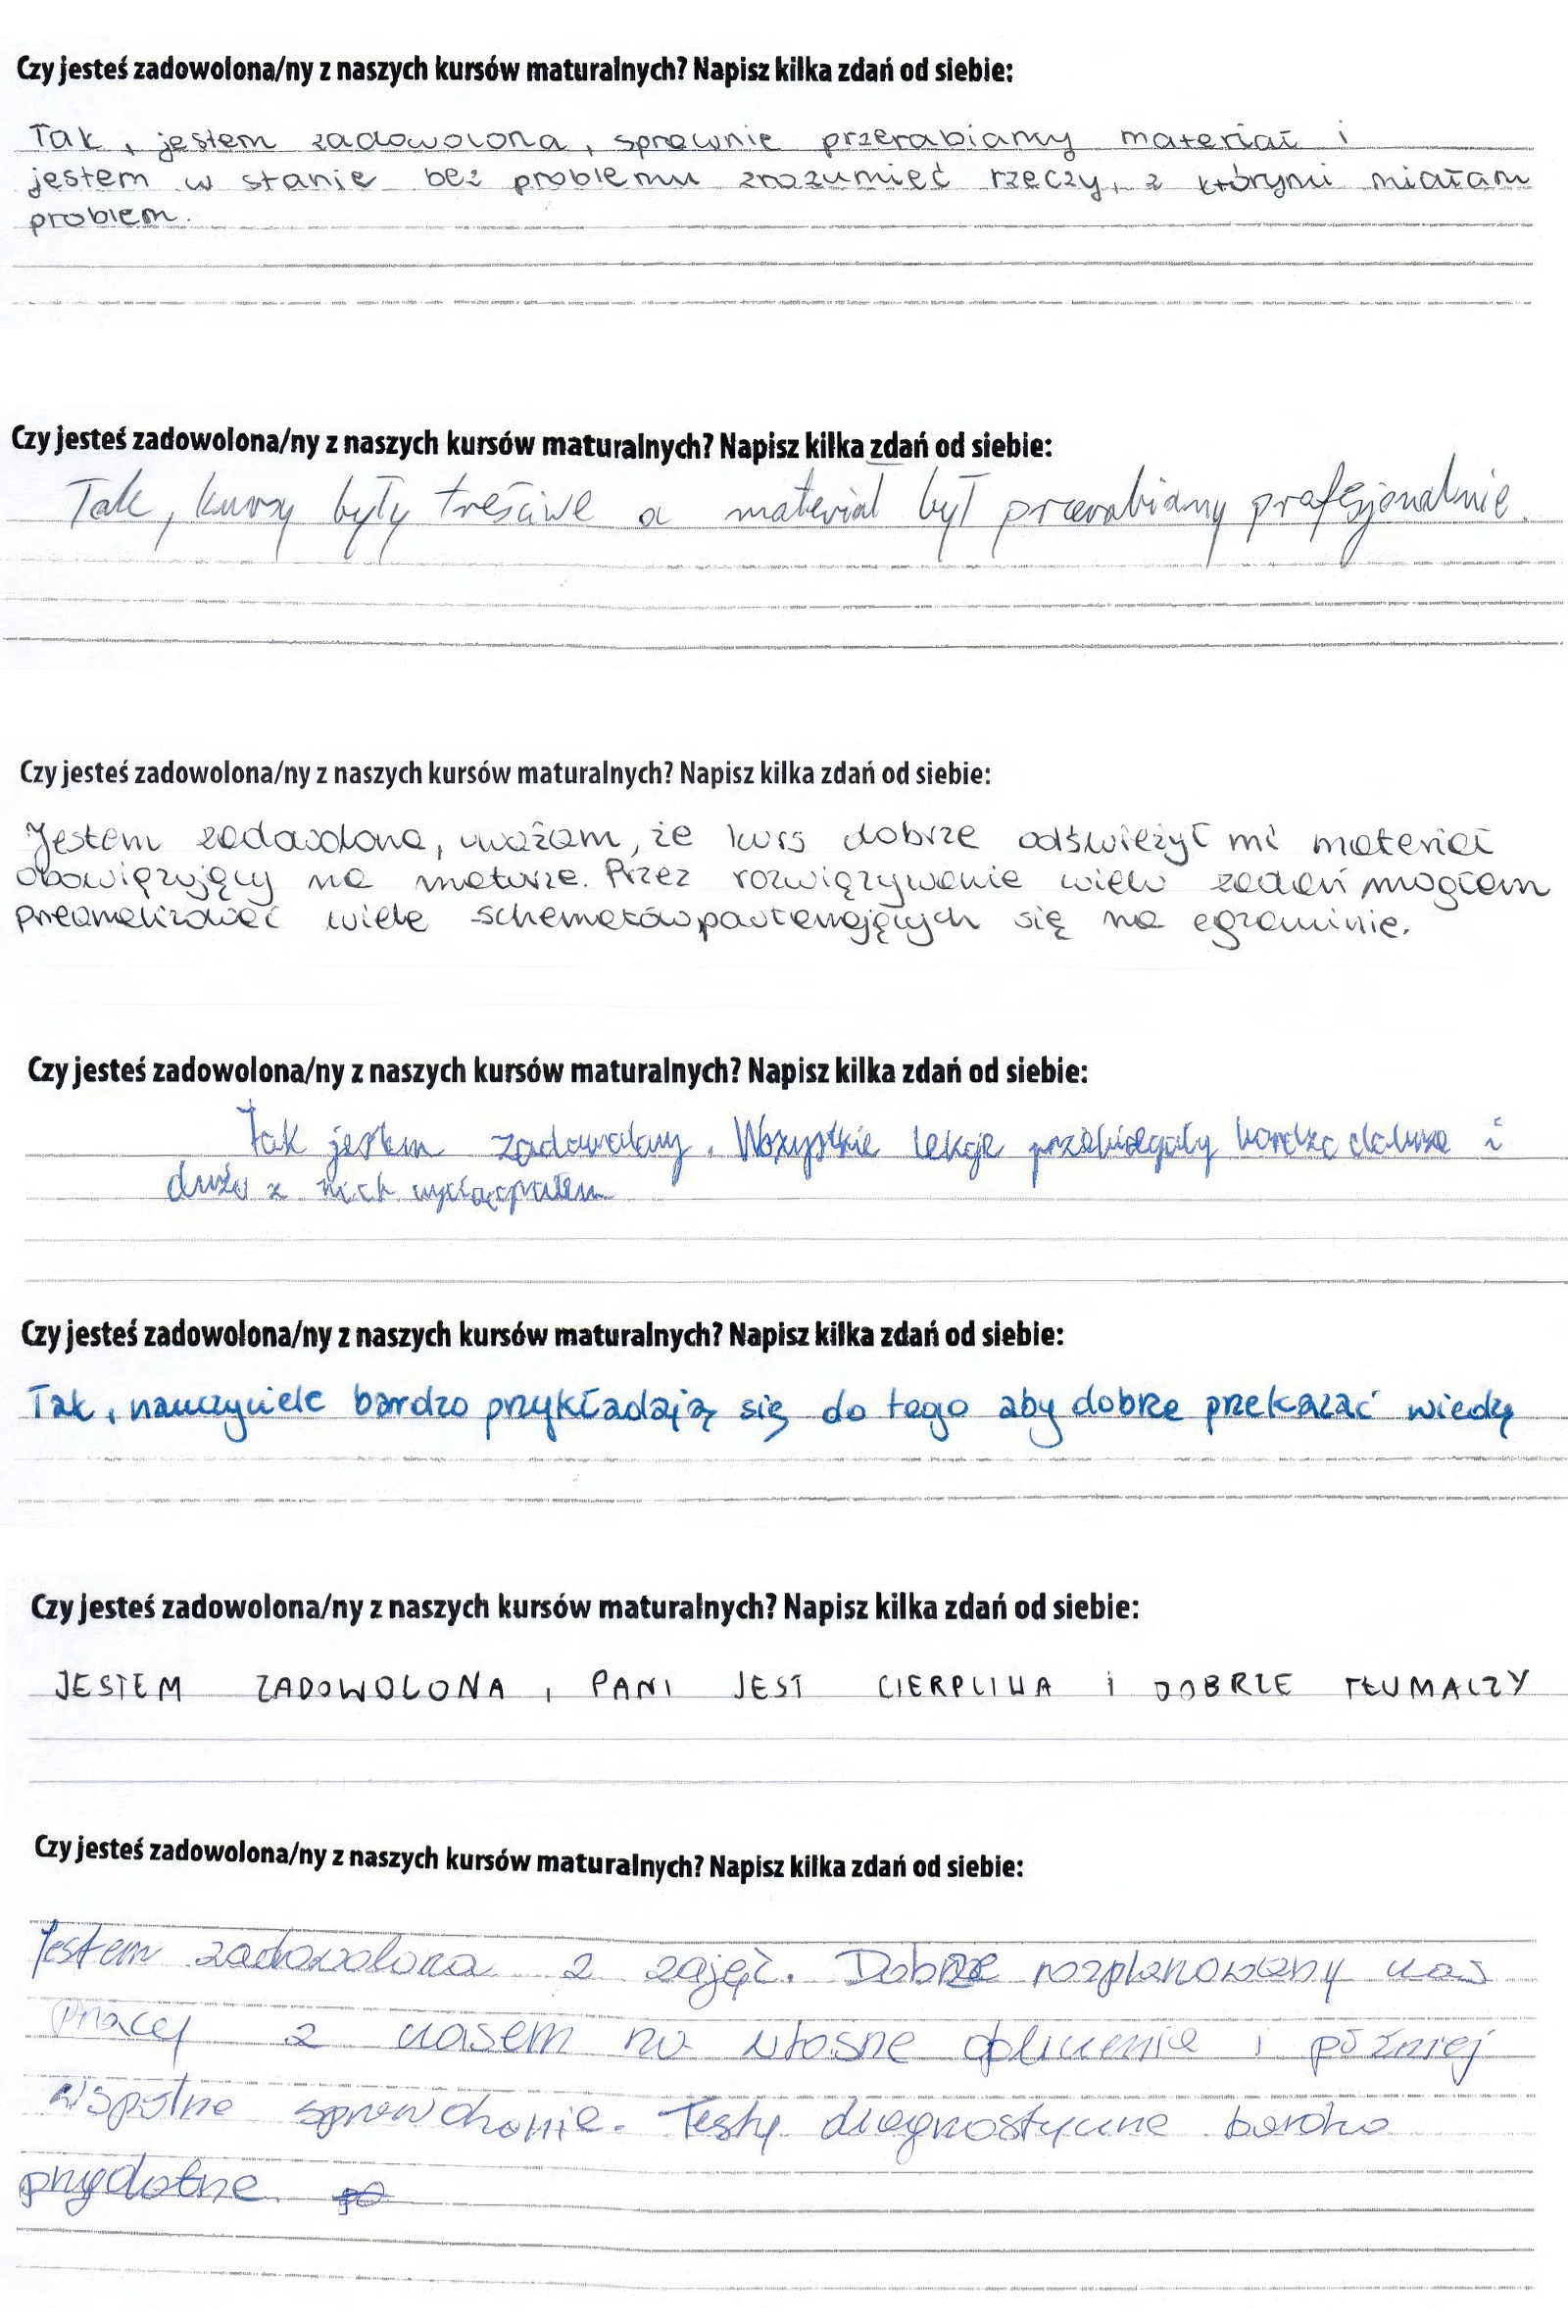 Czy jesteś zadowolona/ny z naszych kursów maturalnych? Napisz kilka zdań od siebie:
Tak, jestem zadowolona, sprawnie przerabiamy materiał i
jestem w stanie bez problemu zrozumieć rzeczy, z którymi miałam
problem.
Czy jesteś zadowolona/ny z naszych kursów maturalnych? Napisz kilka zdań od siebie:
Tak, kursy były treściwe a materiał był przerabiany profesjonalnie.
Czy jesteś zadowolona/ny z naszych kursów maturalnych? Napisz kilka zdań od siebie:
Jestem zadowolona, uważam, że kurs dobrze odświeżył mi materiał
obowiązujący na maturze. Przez rozwiązywanie wielu zadań mogłam
przeanalizować wiele schematów powtarzających się na egzaminie.
Czy jesteś zadowolona/ny z naszych kursów maturalnych? Napisz kilka zdań od siebie:
Tak jestem zadowolony. Wszystkie lekcje przebiegały bardzo dobrze i
dużo z nich
Czy jesteś zadowolona/ny z naszych kursów maturalnych? Napisz kilka zdań od siebie:
Tak, nauczyciele bardzo przykładają się do tego aby dobrze przekazać wiedzę
Czy jesteś zadowolona/ny z naszych kursów maturalnych? Napisz kilka zdań od siebie:
JESTEM ZADOWOLONA, PANI JEST CIERPLIWA I DOBRZE TŁUMACZY
Czy jesteś zadowolona/ny z naszych kursów maturalnych? Napisz kilka zdań od siebie:
Jestem zadowolona z zajęć. Dobrze rozplanowany czas
pracy z czasem na własne obliczenia i później
wspólne sprawdzanie. Testy diagnostyczne bardzo
przydatne